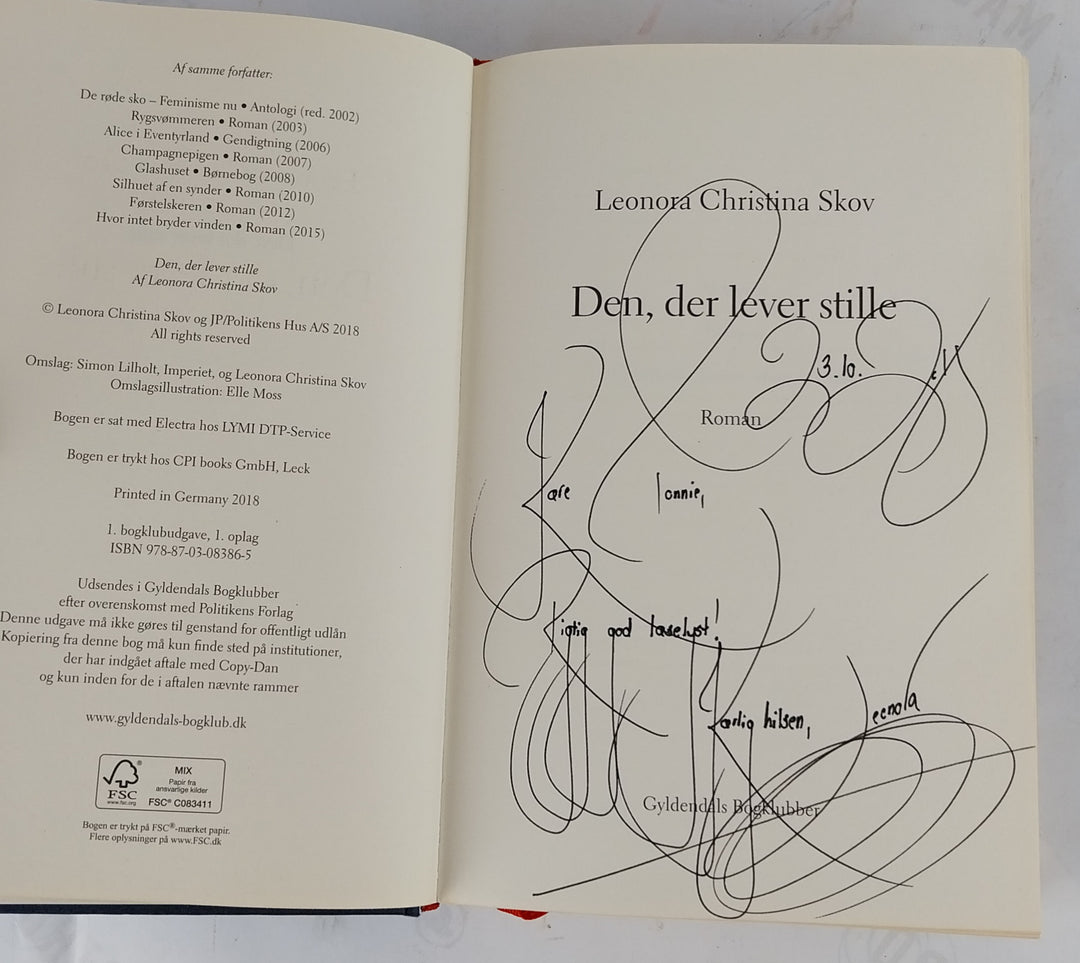 Af samme forfatter:
De røde sko – Feminisme nu • Antologi (red. 2002)
Rygsvømmeren • Roman (2003)
Alice i Eventyrland • Gendigtning (2006)
Champagnepigen • Roman (2007)
Glashuset • Børnebog (2008)
Silhuet af en synder • Roman (2010)
Førstelskeren • Roman (2012)
Hvor intet bryder vinden • Roman (2015)
Den, der lever stille
Af Leonora Christina Skov
© Leonora Christina Skov og JP/Politikens Hus A/S 2018
All rights reserved
Omslag: Simon Lilholt, Imperiet, og Leonora Christina Skov
Omslagsillustration: Elle Moss
Bogen er sat med Electra hos LYMI DTP-Service
Bogen er trykt hos CPI books GmbH, Leck
Printed in Germany 2018
1. bogklubudgave, 1. oplag
ISBN 978-87-03-08386-5
Udsendes i Gyldendals Bogklubber
efter overenskomst med Politikens Forlag
Denne udgave må ikke gøres til genstand for offentligt udlån
Kopiering fra denne bog må kun finde sted på institutioner,
der har indgået aftale med Copy-Dan
og kun inden for de i aftalen nævnte rammer
www.gyldendals-bogklub.dk
FSC
www.fsc.org
MIX
Papir fra
ansvarlige kilder
FSC® C083411
Bogen er trykt på FSC®-mærket papir.
Flere oplysninger på www.FSC.dk
Leonora Christina Skov
Den, der lever stille
Roman
Kære
god læselyst!
Kærlig hilsen,
Gyldendals Bogklubber